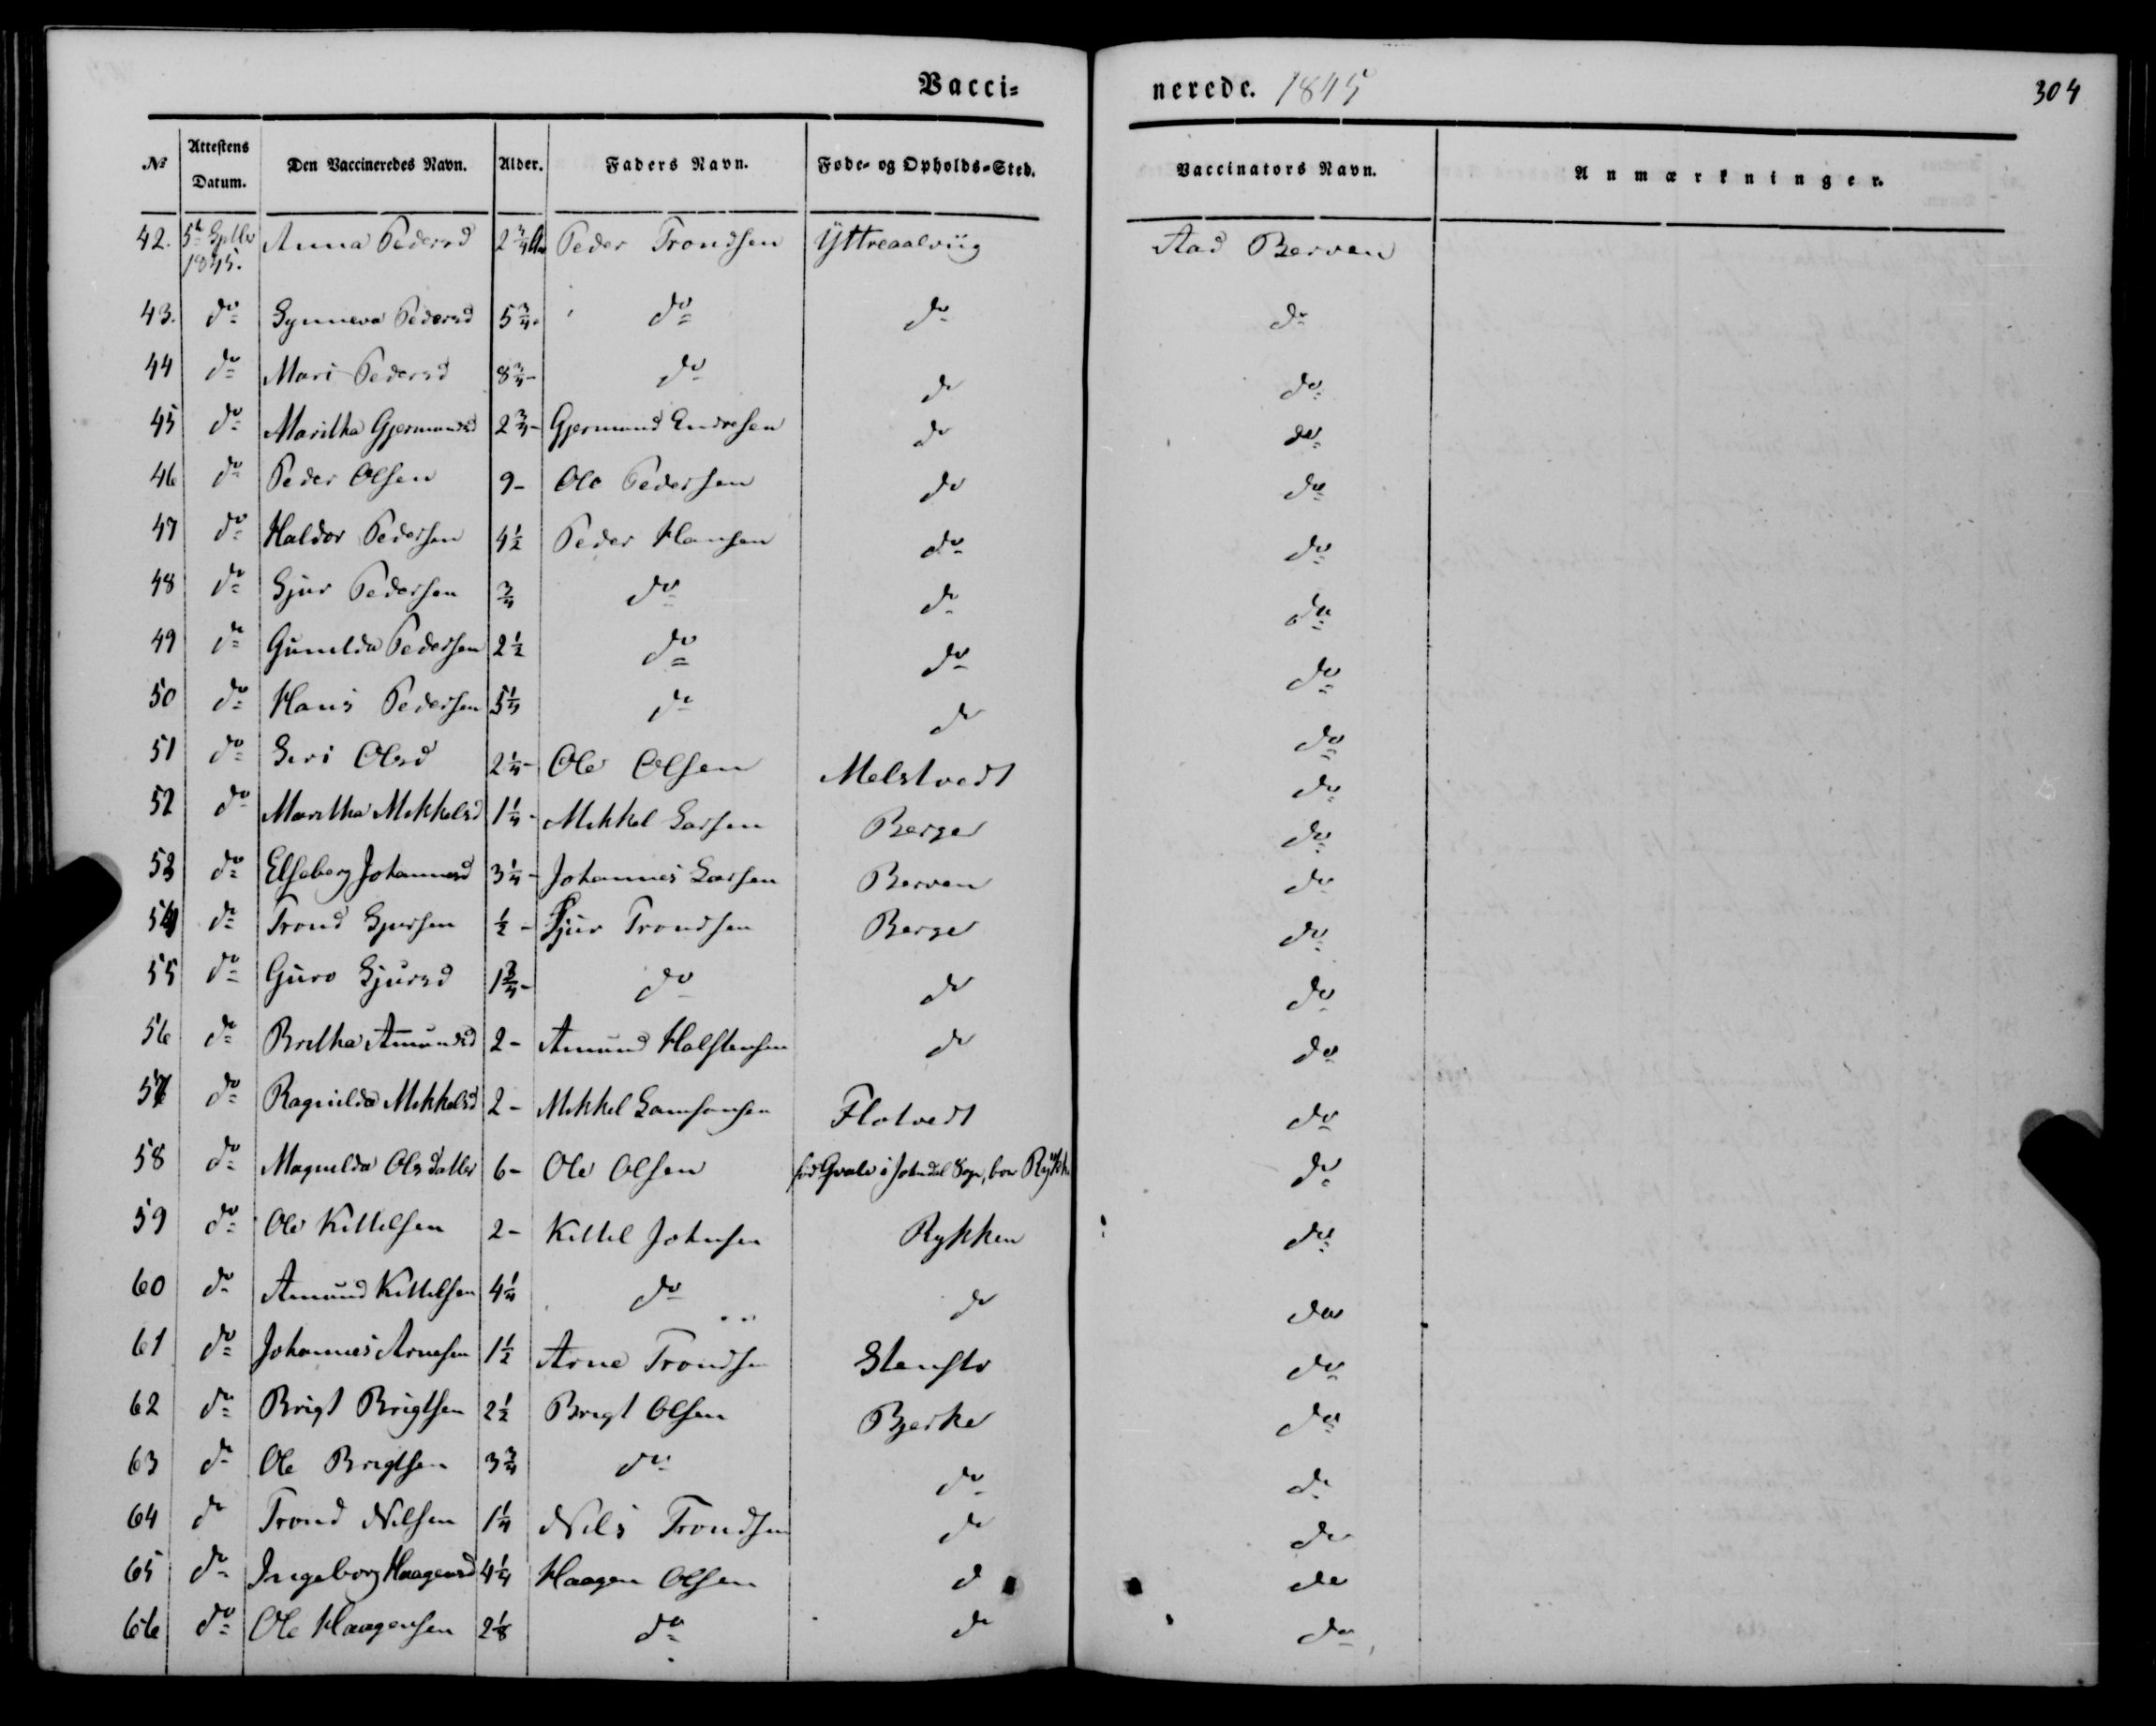 Vacci= nerede. 1845 304
№ Attestens Datum. Den Vaccineredes Navn. Alder. Faders Navn. Føde- og Opholds-Sted. Vaccinators Navn. Anmærkninger.
42. 5te Septbr 1845. Anna Pedersd 2 3/4 Peder Trondsen Yttreaalviig Aad Berven
43. do Synneva Pedersd 5 3/4 do do do
44 do Mari Pedersd 8 3/4 - do do do
45 do Maritha Gjermundsd 2 3/4 - Gjermund Endresen do do
46 do Peder Olsen 9 - Ole Pedersen do do
47 do Haldor Pedersen 4 1/2 Peder Hansen do do
48 do Sjur Pedersen 3/4 do do do
49 do Gunilda Pedersen 2 1/2 do do do
50 do Hans Pedersen 5 1/4 do do do
51 do Siri Olsd 2 1/4 - Ole Olsen Melstvedt do
52 do Maritha Mikkelsd 1 1/4 - Mikkel Larsen Berge do
53 do Elseberg Johannesd 3 1/4 - Johannes Larsen Berven do
54 do Trond Sjursen 1/2 - Sjur Trondsen Berge do
55 do Guro Sjursd 1 3/4 - do do do
56 do Britha Amundsd 2 - Amund Halstensen do do
57 do Ragnilda Mikkelsd 2 - Mikkel Samsonsen Flotvedt do
58 do Magnilda Olsdatter 6 - Ole Olsen fød Qvale i Jondal Sogn, boer Rykk. do
59 do Ole Kittilsen 2 - Kittil Johnsen Rykken do
60 do Amund Kittilsen 4 1/4 do do do
61 do Johannes Arnesen 1 1/2 Arne Trondsen Stensto do
62 do Brigt Brigtsen 2 1/2 Brigt Olsen Bjerke do
63 do Ole Brigtsen 3 3/4 do do do
64 do Trond Nilsen 1 1/4 Nils Trondsen do do
65 do Ingeborg Haagensd 4 1/4 Haagen Olsen do do
66 do Ole Haagensen 2 1/8 do do do